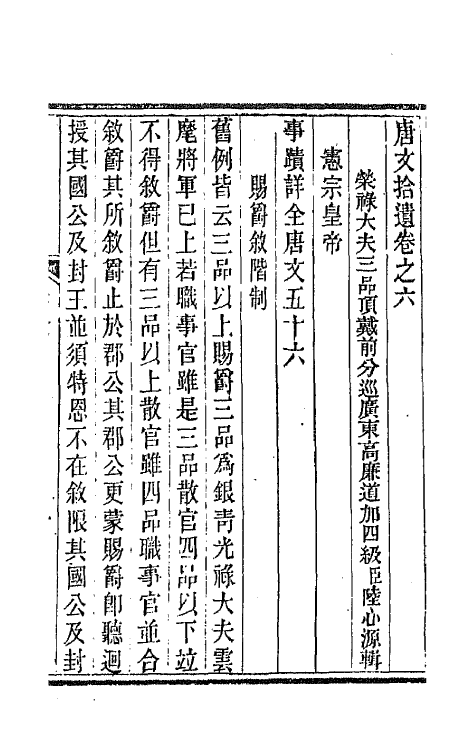 唐文拾遺卷之六
榮祿大夫三品頂戴前分巡廣東高廉道加四級臣陸心源輯
憲宗皇帝
事蹟詳全唐文五十六
賜爵敘階制
舊例皆云三品以上賜爵三品爲銀青光祿大夫雲
麾將軍已上若職事官雖是三品散官四品以下竝
不得敘爵但有三品以上散官雖四品職事官並合
敘爵其所敘爵止於郡公其郡公更蒙賜爵卽聽迴
授其國公及封王並須特恩不在敘限其國公及封